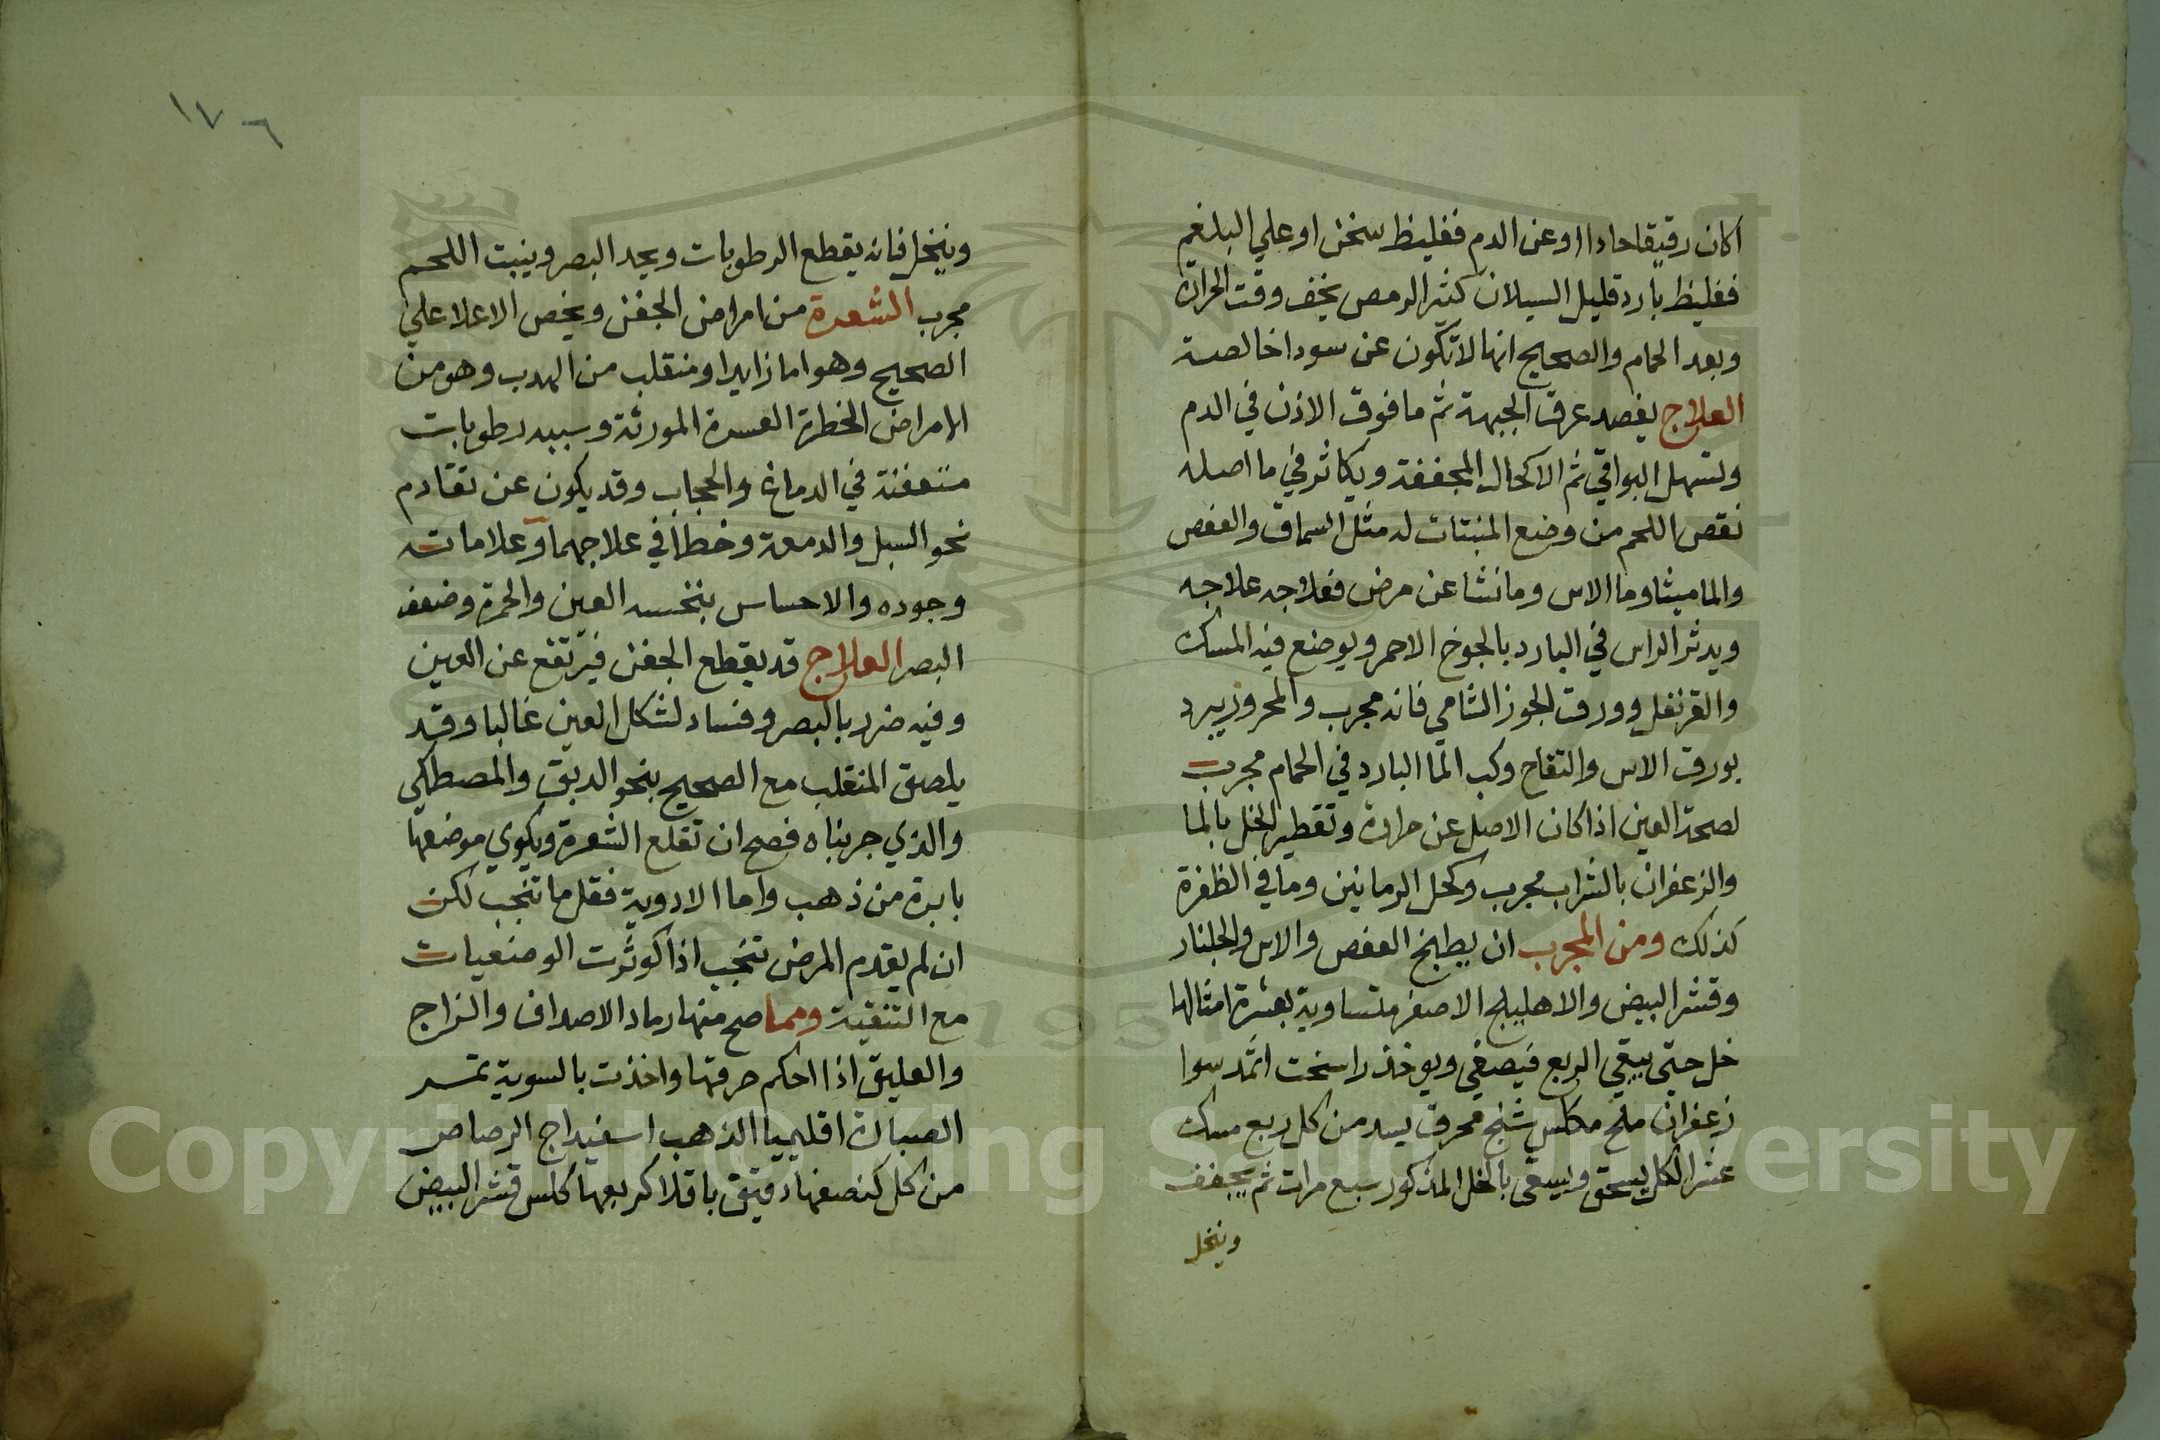 اكان رقيقا حادا او عن الدم فغليظ سخن او علي البلغم
فغليظ بارد قليل السيلان كثير الرمص يخف وقت الحرارة
وبعد الحمام والصحيح انها لا تكون عن سودا خالصة
العلاج يفصد عرق الجبهة ثم ما فوق الاذن في الدم
وتسهل البواقي ثم الاكحال المجففة ويكاثر في ما اصله
نقص اللحم من وضع المنبتات له مثل السماق والعفص
والماميثا وما الاس وما نشا عن مرض فعلاجه علاجه
ويدثر الراس في البارد بالجوخ الاحمر ويوضع فيه المسك
والقرنفل وورق الجوز الشامي فانه مجرب والمحرور يبرد
بورق الاس والتفاح وكب الما البارد في الحمام مجرب
لصحة العين اذا كان الاصل عن حرارة وتقطير الخل بالما
والزعفران بالشراب مجرب وكحل الرمانين وما في الظفرة
كذلك ومن المجرب ان يطبخ العفص والاس والجلنار
وقشر البيض والاهليلج الاصفر متساوية بعشرة امثالها
خل حتى يبقي الربع فيصفي ويوخذ راسخت اثمد سوا
زعفران ملح مكلس شنج محرق بسد من كل ربع مسك
عشر الكل يسحق ويسقي بالخل المذكور سبع مرات ثم يجفف
وينخل
١٧٦
وينخل فانه يقطع الرطوبات ويحد البصر وينبت اللحم
مجرب الشعرة من امراض الجفن ويخص الاعلا علي
الصحيح وهو اما زايد او منقلب من الهدب وهو من
الامراض الخطرة العسرة المورثة وسببه رطوبات
متعفنة في الدماغ والحجاب وقد يكون عن تقادم
نحو السبل والدمعة وخطا في علاجهما وعلاماته
وجوده والاحساس بنخسه العين والحمرة وضعف
البصر العلاج قد يقطع الجفن فيرتفع عن العين
وفيه ضرر بالبصر وفساد لشكل العين غالبا وقد
يلصق المنقلب مع الصحيح بنحو الدبق والمصطكي
والذي جربناه فصح ان تقلع الشعرة ويكوي موضعها
بابرة من ذهب واما الادوية فقل ما تنجب لكن
ان لم يقدم المرض تنجب اذا كوثرت الوضعيات
مع التنقية ومما صح منها رماد الاصداف والزاج
والعليق اذا احكم حرقها واخذت بالسوية تمسد
الصبارة اقليميا الذهب اسفيداج الرصاص
من كل كنصفها دقيق باقلا كربعها كلس قشر البيض
Copyright © King Saud University
1957